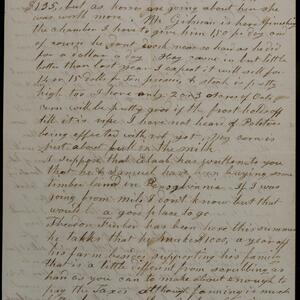 $135, but as horses are going about him she
was worth more. Mr Gilman is here finishing
the chamber I have to give him 1 50 pr day and
of course he dont work near so hard as he did
for a dollar a day. Hay came in but little
better than last year I expect it will sell for
14 or 15 dolls pr Ton pressed, & stock is pretty
high too I have only 2 or 3 acres of Oats
corn will be pretty good if the frost holds off
till it is ripe I have not heard of Potatoes
being affected with rot yet. My corn is
just about full in the milk
I suppose that has written to you
that he & Samuel have been buying some
timber land in Pensylvania. If I was
going from milo I dont know but that
would be a good place to go
Theron Fisher has been here this summer
he talks that he makes 1000, a year off
his farm besides supporting his family
that is a little different from scrabbling as
hard as you can to make out enough to
pay the Taxes although farming is much